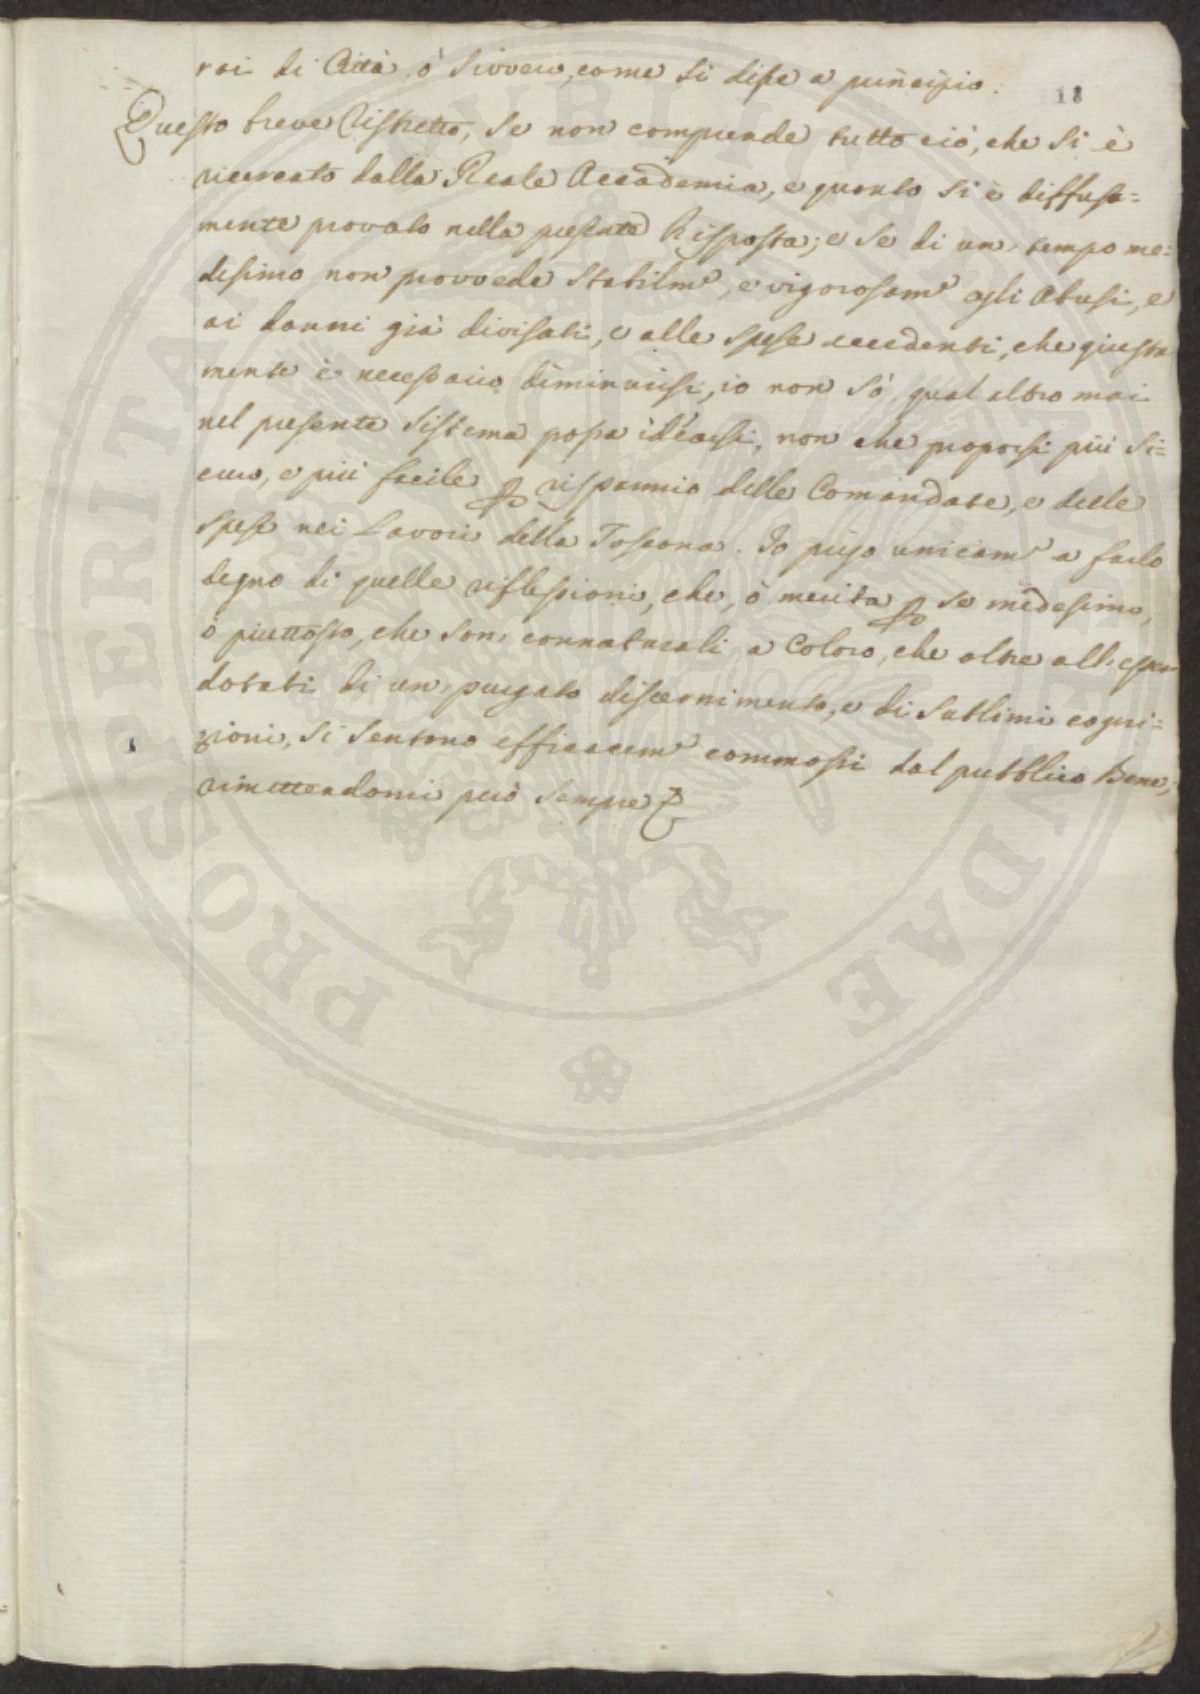 rai di Città, ò sivvero, come si disse a principio.
18
Questo breve Ristretto, se non comprende tutto ciò, che si è
ricercato dalla Reale Accademia, e quanto si è diffusa=
mente provato nella presente Risposta; e se di un, tempo me=
desimo non provvede stabilm.e, e vigorosam.e agli Abusi, e
ai danni già divisati, e alle spese eccedenti, che giusta
mente è necessario diminuirsi, io non sò qual altro mai
nel presente sistema possa idearsi, non che proporsi più si=
curo, e più facile p risparmio delle Comandate, e delle
spese nei Lavori della Toscana. Io prego unicam.e a farlo
degno di quelle riflessioni, che, ò merita p se medesimo,
ò piuttosto, che son, connaturali a Coloro, che oltre all'esser
dotati di un, purgato discernimento, e di sublimi cogni=
zioni, si sentono efficacem.e commossi dal pubblico Bene,
rimettendomi però sempre
PROSPERITATI PUBLICAE